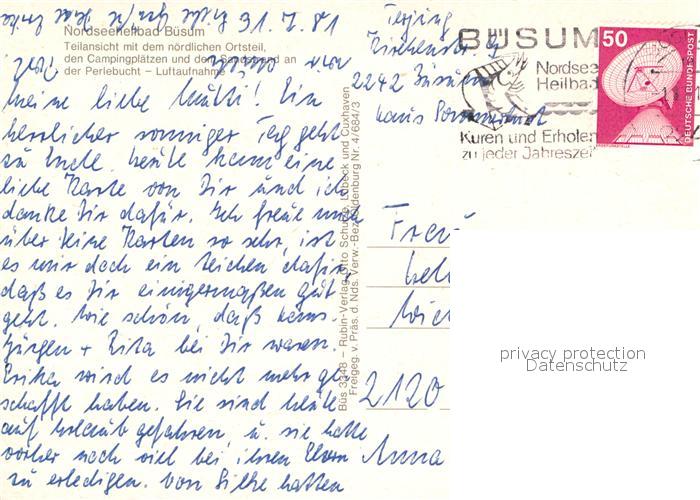 31.7.81
Nordseeheilbad Büsum
Teilansicht mit dem nördlichen Ortsteil,
den Campingplätzen und dem Sandstrand an
der Perlebucht – Luftaufnahme
Meine liebe Mutti! Ein
herrlicher sonniger Tag geht
zu Ende. Heute kam eine
liebe Karte von Dir und ich
danke Dir dafür. Ich freue mich
über Deine Karten so sehr, ist
es mir doch ein Zeichen dafür,
daß es Dir einigermaßen gut
geht. Wie schön, daß Hans-
Jürgen + Rita bei Dir waren.
Erika wird es nicht mehr ge-
schafft haben. Sie sind heute
auf Urlaub gefahren, u. sie hatte
vorher noch viel bei ihren Eltern
zu erledigen. Von Silke hatten
Büs 3248 – Rubin-Verlag Otto Schulze, Lübeck und Cuxhaven
Freigeg. v. Präs. d. Nds. Verw.-Bez. Oldenburg Nr. 4/684/3
2242 Büsum
Haus
BÜSUM
Nordsee
Heilbad
Kuren und Erholen
zu jeder Jahreszeit
50
DEUTSCHE BUNDESPOST
2120
privacy protection
Datenschutz